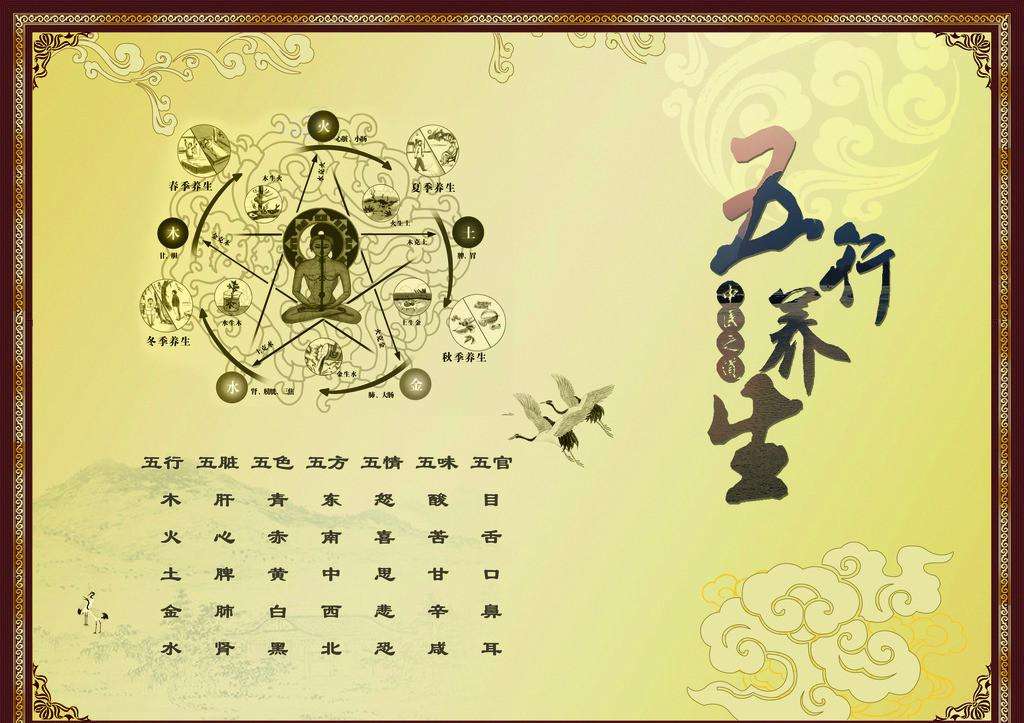 火
心脏、小肠
春季养生
夏季养生
木生火
火生土
木
土
木克土
脾、胃
甘、胆
水生木
土生金
冬季养生
秋季养生
金生水
水
肾、膀胱、三焦
金
肺、大肠
五行养生
中医之道
五行 五脏 五色 五方 五情 五味 五官
木 肝 青 东 怒 酸 目
火 心 赤 南 喜 苦 舌
土 脾 黄 中 思 甘 口
金 肺 白 西 悲 辛 鼻
水 肾 黑 北 恐 咸 耳